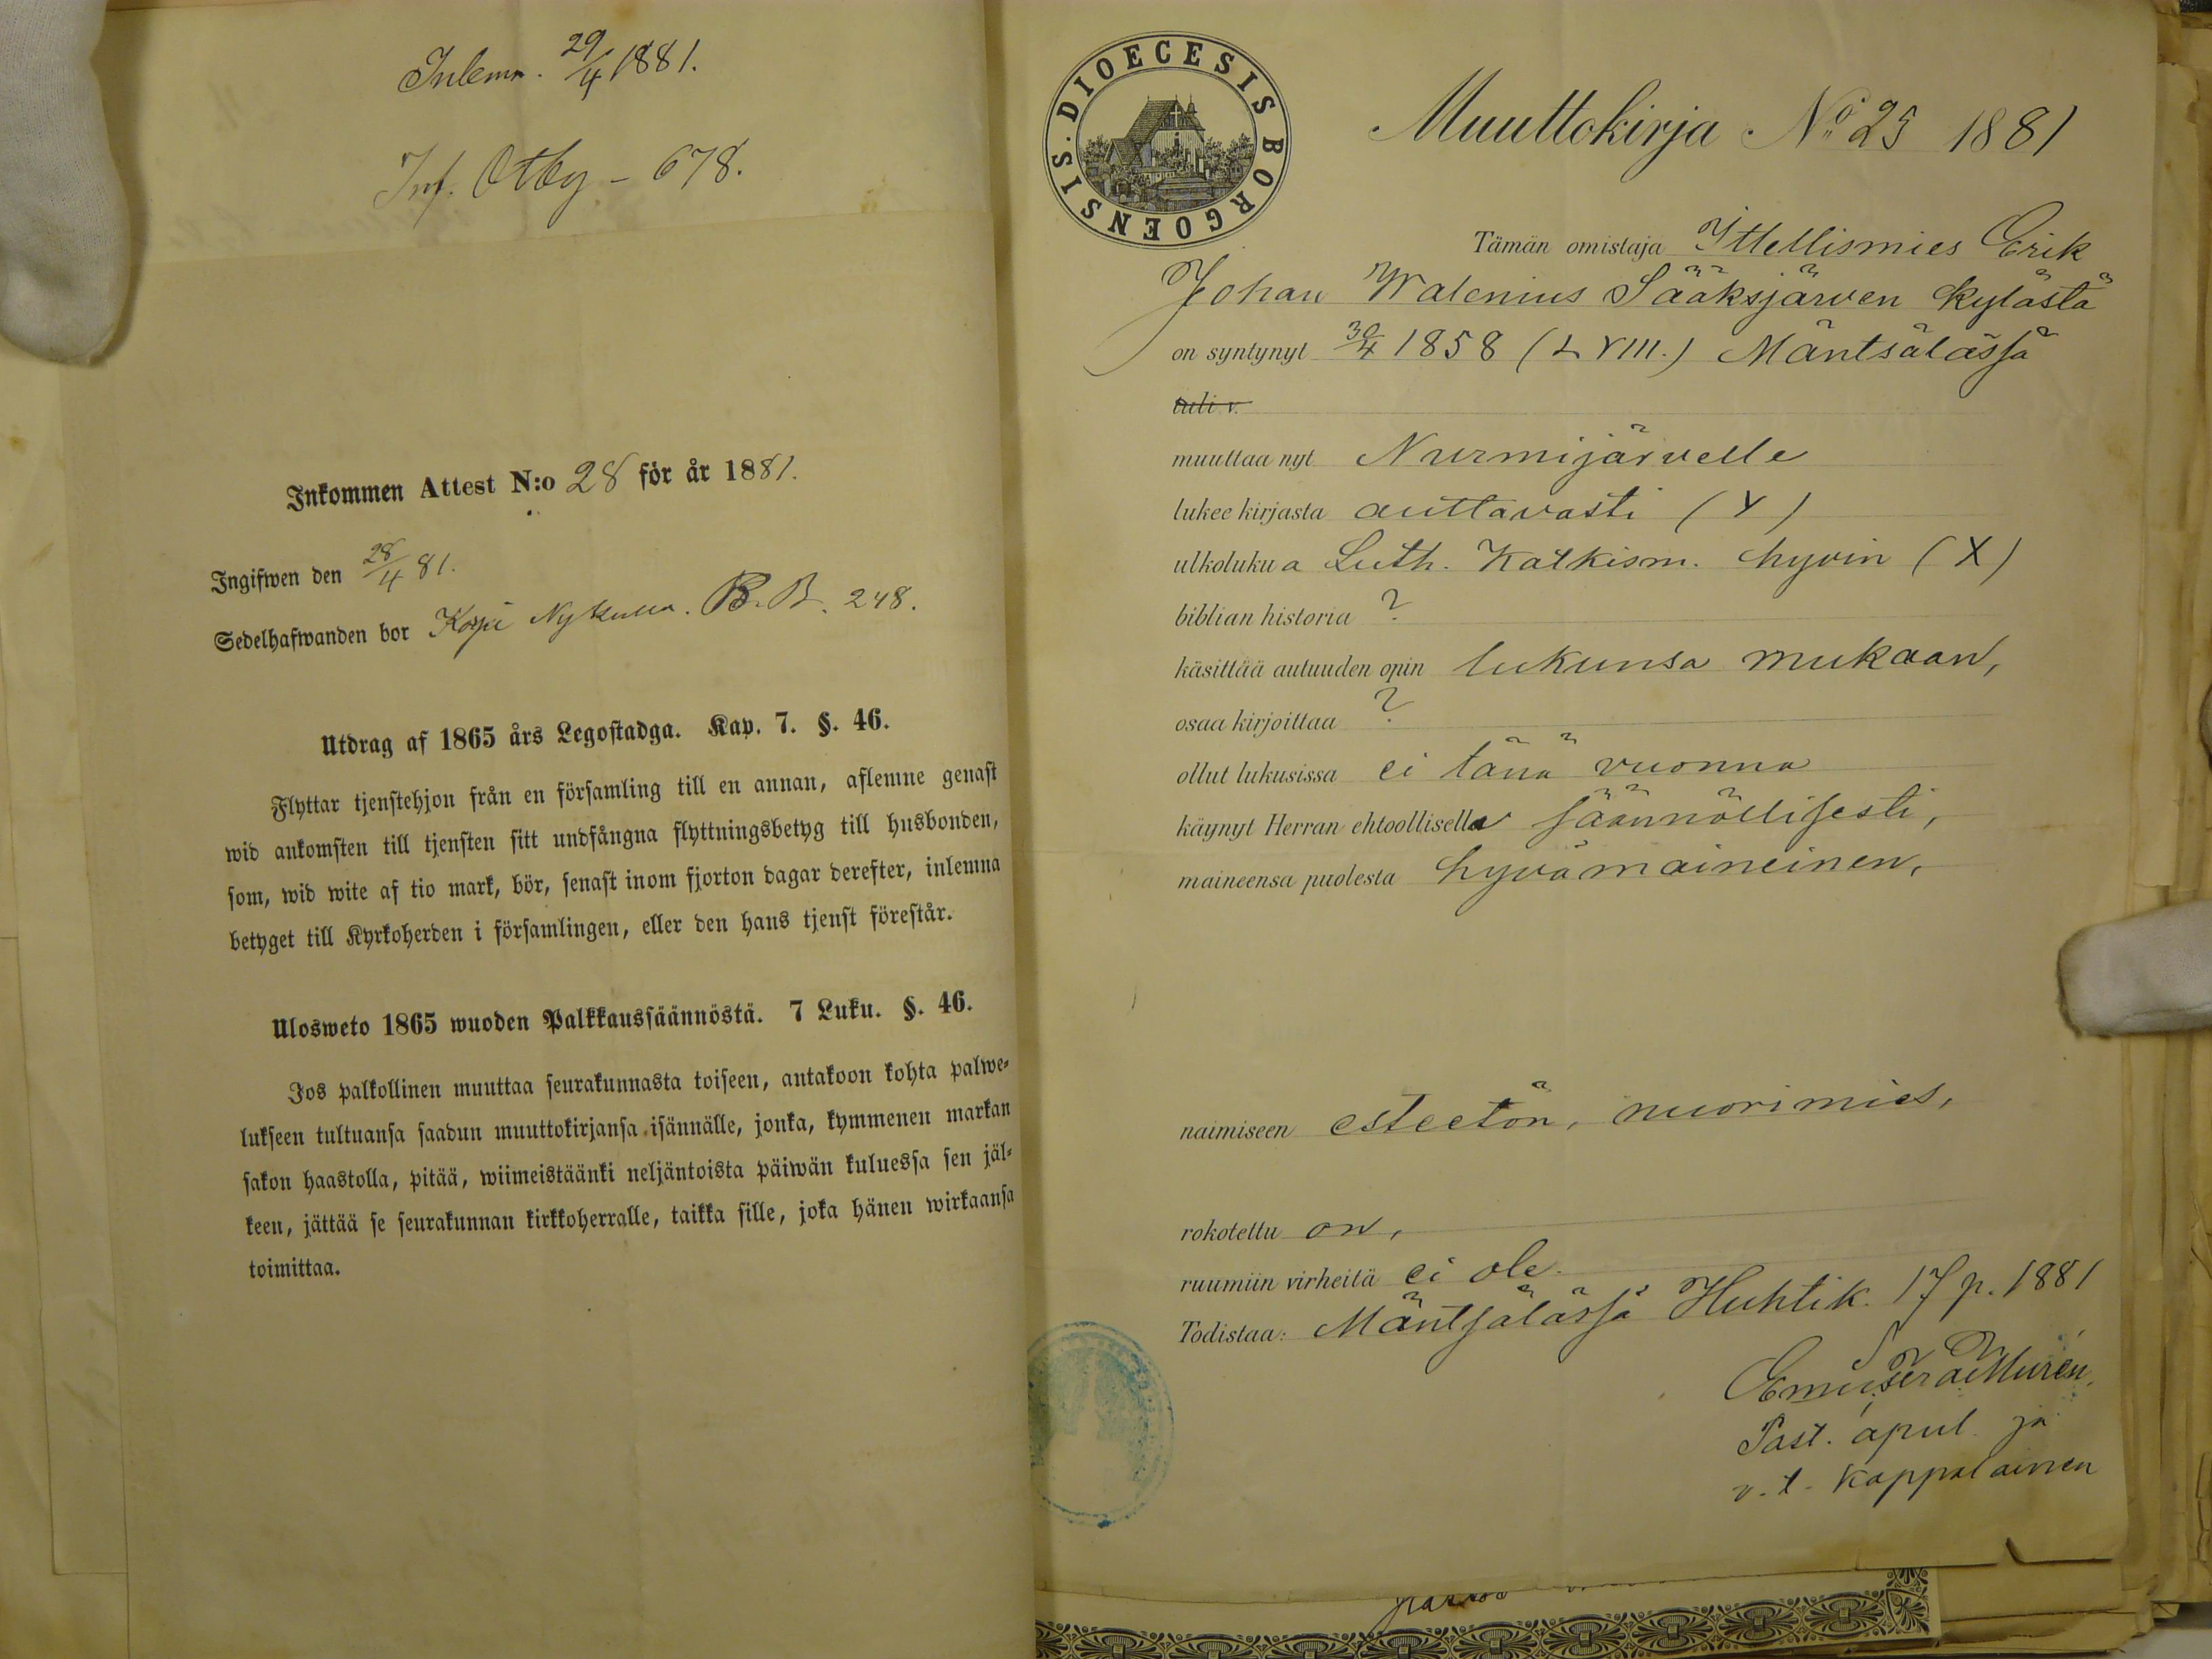 Inlemn. 29/4 1881.
Inf. Otby - 678.
Inkommen Attest N:o 28 för år 1881.
Ingifwen den 28/4 81.
Sedelhafwanden bor Korpi Nykulla. B. B. 248.
Utdrag af 1865 års Legostadga. Kap. 7. §. 46.
Flyttar tjenstehjon från en församling till en annan, aflemne genast
wid ankomsten till tjensten sitt undfångna flyttningsbetyg till husbonden,
som, wid wite af tio mark, bör, senast inom fjorton dagar derefter, inlemna
betyget till Kyrkoherden i församlingen, eller den hans tjenst förestår.
Ulosweto 1865 wuoden Palkkaussäännöstä. 7 Luku. §. 46.
Jos palkollinen muuttaa seurakunnasta toiseen, antakoon kohta palwe-
lukseen tultuansa saadun muuttokirjansa isännälle, jonka, kymmenen markan
sakon haastolla, pitää, wiimeistäänki neljäntoista päiwän kuluessa sen jäl-
keen, jättää se seurakunnan kirkkoherralle, taikka sille, joka hänen wirkaansa
toimittaa.
DIOECESIS BORGOENSIS.
Muuttokirja No 25 1881
Tämän omistaja Ittellismies Erik
Johan Walenius Sääksjärven kylästä
on syntynyt 30/4 1858 (LVIII.) Mäntsälässä
tuli v.
muuttaa nyt Nurmijärvelle
lukee kirjasta auttavasti (Y)
ulkoluku a Luth. Katkism. hyvin (X)
biblian historia ?
käsittää autuuden opin lukunsa mukaan,
osaa kirjoittaa ?
ollut lukusissa ei tänä vuonna
käynyt Herran ehtoollisella säännöllisesti,
maineensa puolesta hyvämaineinen,
naimiseen esteetön, nuorimies,
rokotettu on,
ruumiin virheitä ei ole.
Todistaa: Mäntsälässä Huhtik. 17 p. 1881
Past. apul. ja
v. t. Kappalainen